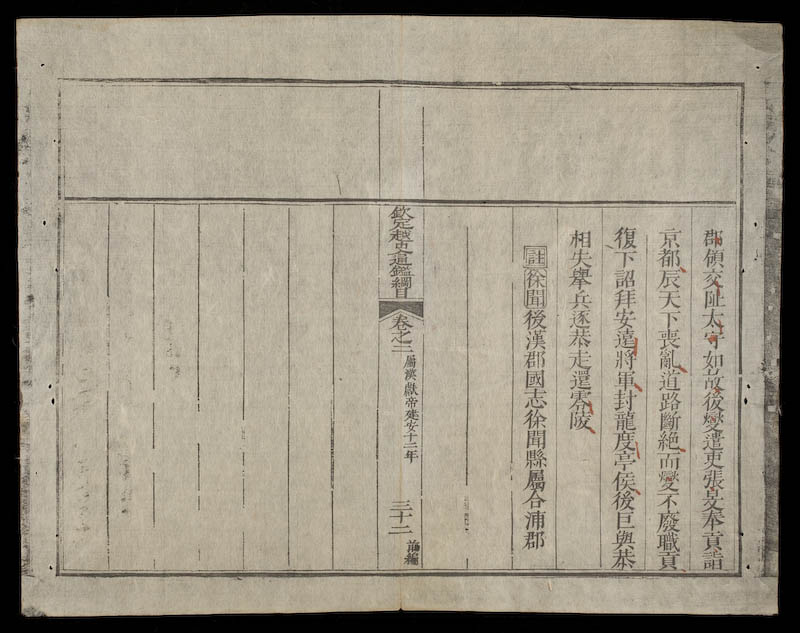 郡領交趾太守如故後燮遣吏張旻奉貢詣
京都辰天下喪亂道路斷絕而燮不廢職貢
復下詔拜安遠將軍封龍度亭侯後巨與恭
相失舉兵逐恭走還零陵
註徐聞後漢郡國志徐聞縣屬合浦郡
欽定越史通鑑綱目
卷之二
屬漢獻帝建安十二年
三十二
前編